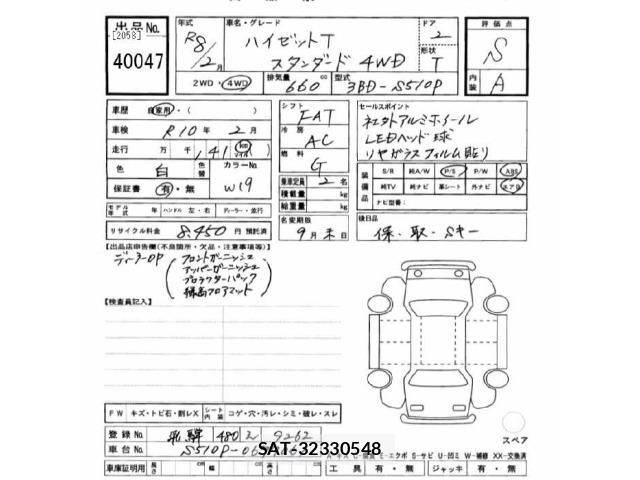 出品No. [2058] 40047
年式 R8/2月
車名・グレード ハイゼットT スタンダード 4WD
ドア 2
形状 T
2WD・4WD
排気量 660 cc
型式 3BD-S510P
評価点 S
内装 A
車歴 自家用・( )
車検 R10年2月
走行 万 千 141 km マイル
色 白 色替
カラーNo. W19
保証書 有・無
シフト FAT
冷房 AC
燃料 G
乗車定員 2 名
積載量 kg
総重量 kg
セールスポイント
社外アルミホイール
LEDヘッド球
リヤガラスフィルム貼り
装備品 S/R 純A/W P/S P/W ABS
純TV 純ナビ 革シート 外ナビ エアB
ナビ型番:
モデル年式 年 ハンドル 左・右 ディーラー・並行
リサイクル料金 8,450 円 預託済
名変期限 9月末日
後日品 保・取・Sキー
【出品店申告欄(不良箇所・欠品・注意事項等)】
ディーラーOP
フロントガーニッシュ
アッパーガーニッシュ
プロテクターパック
縁高フロアマット
【検査員記入】
FW キズ・トビ石・割レX シート内装 コゲ・穴・汚レ・シミ・破レ・スレ
登録No. 飛騨 480 2 9262
車台No. S510P-06
SAT-32330548
スペア
E-エクボ S-サビ U-凹ミ W-補修 XX-交換済
車庫証明用 長さ cm 幅 cm 高さ cm
工具 有・無 ジャッキ 有・無